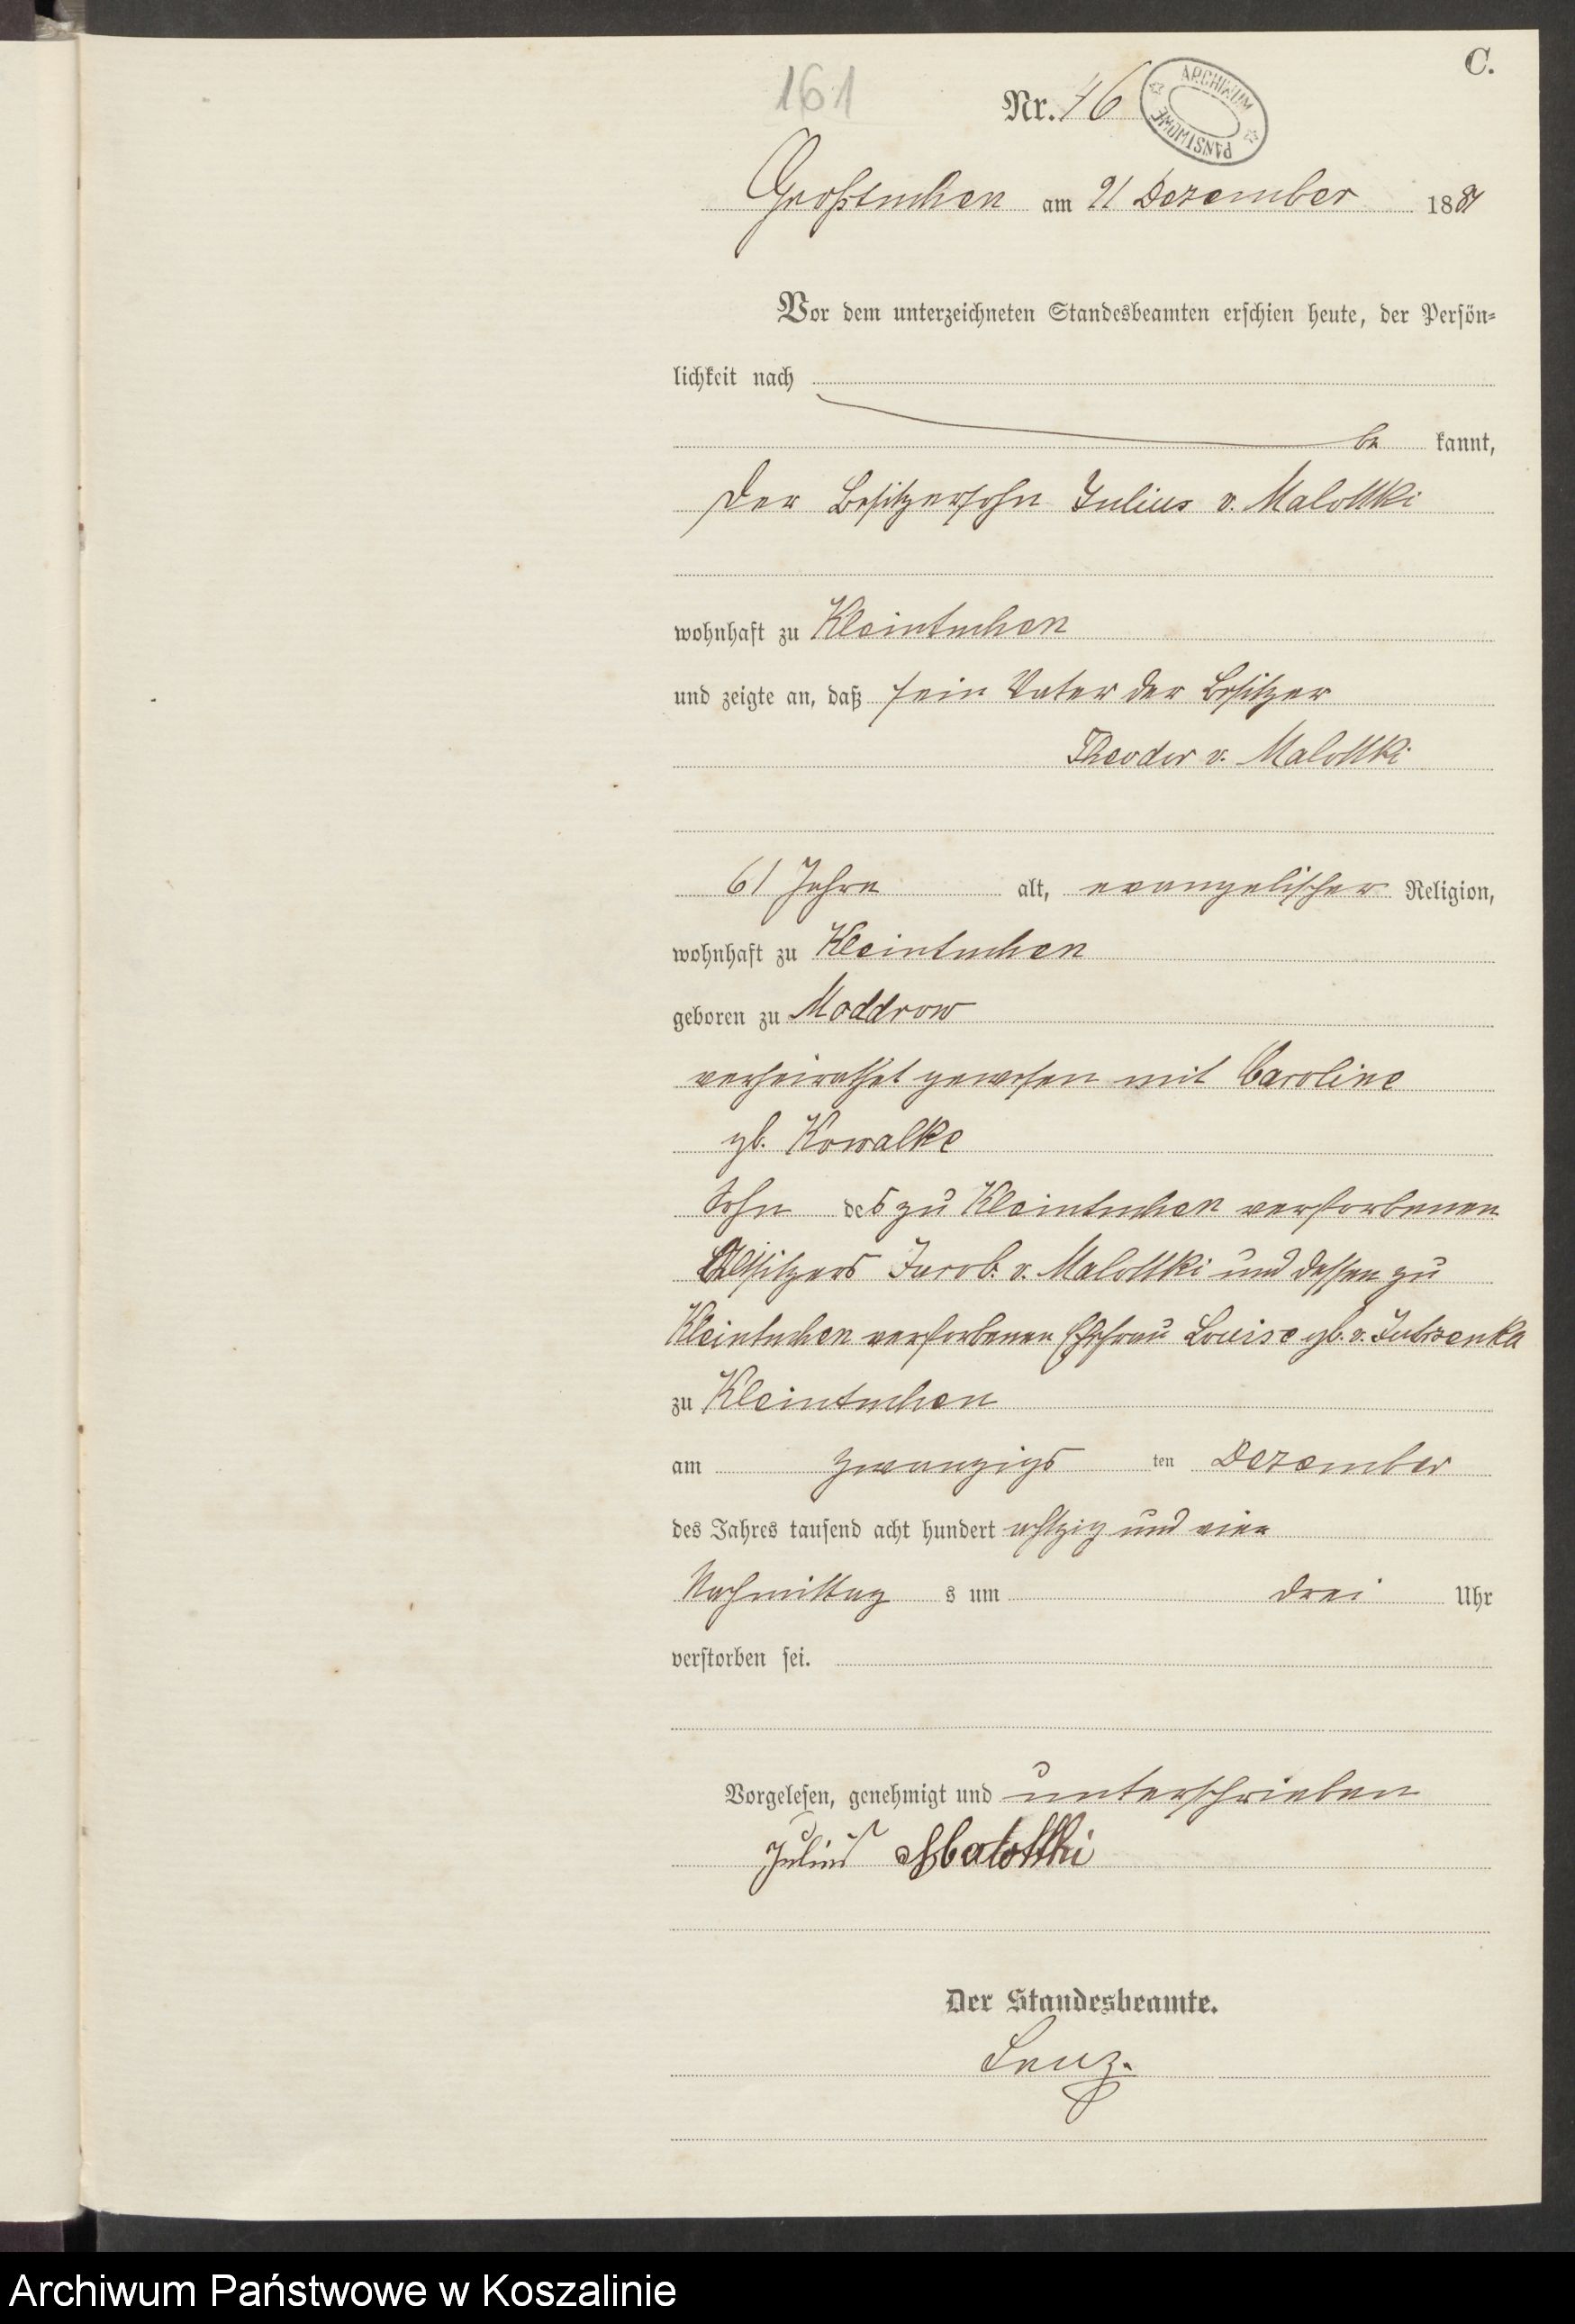 C.
161
Nr. 46
ARCHIWUM PAŃSTWOWE
Großtuchen am 21 Dezember 1884
Vor dem unterzeichneten Standesbeamten erschien heute, der Persön-
lichkeit nach
be kannt,
der Besitzersohn Julius v. Malottki
wohnhaft zu Kleintuchen
und zeigte an, daß sein Vater der Besitzer
Theodor v. Malottki
61 Jahre alt, evangelischer Religion,
wohnhaft zu Kleintuchen
geboren zu Moddrow
verheirathet gewesen mit Caroline
gb. Kowalke
Sohn des zu Kleintuchen verstorbenen
Besitzers Jacob v. Malottki und dessen zu
Kleintuchen verstorbenen Ehefrau Louise gb. v.
zu Kleintuchen
am zwanzigs ten Dezember
des Jahres tausend acht hundert achtzig und vier
Nachmittag s um drei Uhr
verstorben sei.
Vorgelesen, genehmigt und unterschrieben
Julius Malottki
Der Standesbeamte.
Lenz.
Archiwum Państwowe w Koszalinie